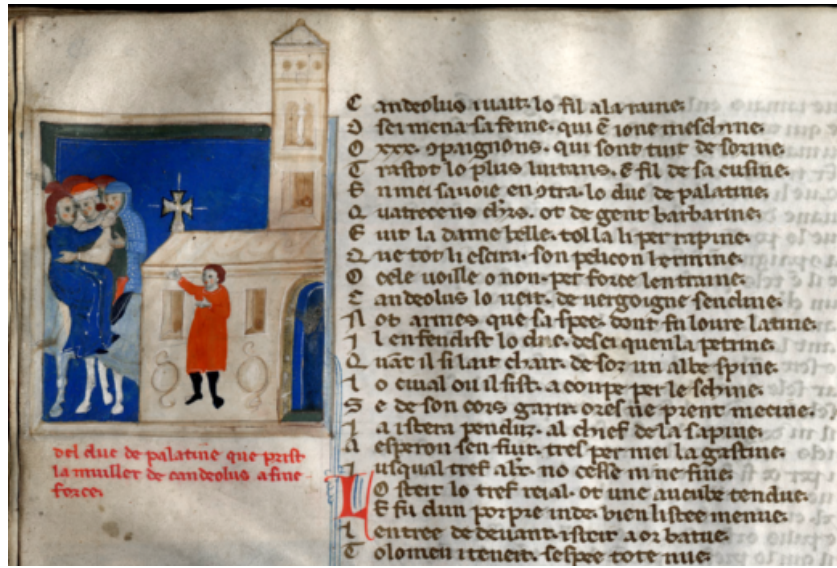 del duc de palatine que prist
la muiller de candeolus a fine
force.
C andeolus i uait. lo fil ala raine.
O sei mena sa feme. qui ē ione meschine.
O xxx. ꝯpaignons. qui sont tuit de sozine.
T rastot lo plus luitans. ē fil de sa cusine.
E n mei sa uoie en ꝯtra. lo duc de palatine.
Q uatrecens chr̄s. ot de gent barbarine.
E uit la dame belle. tolla li per rapine.
Q ue tot li escira. son pelicon hermine.
O cele uoille o non. per force lentraine.
C andeolus lo ueit. de uergoigne senclinе.
N ot armes que sa spee. dont fu loure latine.
I l en fendist lo duc. desci quen la petrine.
Q uāt il fi lait chair. de soz un albe spine.
I o ciual ou il sist. a coupe per le schine.
S e de son cors garir. ores ne prent mecine.
I a istera penduz. al chief de la sapine.
A esperon sen fiut. tres per mei la gastine.
I usqual tref alx̄. no cesse ni ne fine.
L O steit lo tref reial. ot une aucube tendue.
E fu dun porpre inde. bien listee menue.
L entree de deuant. isteit a or batue.
T olomeu i teneit. sespee tote nue.